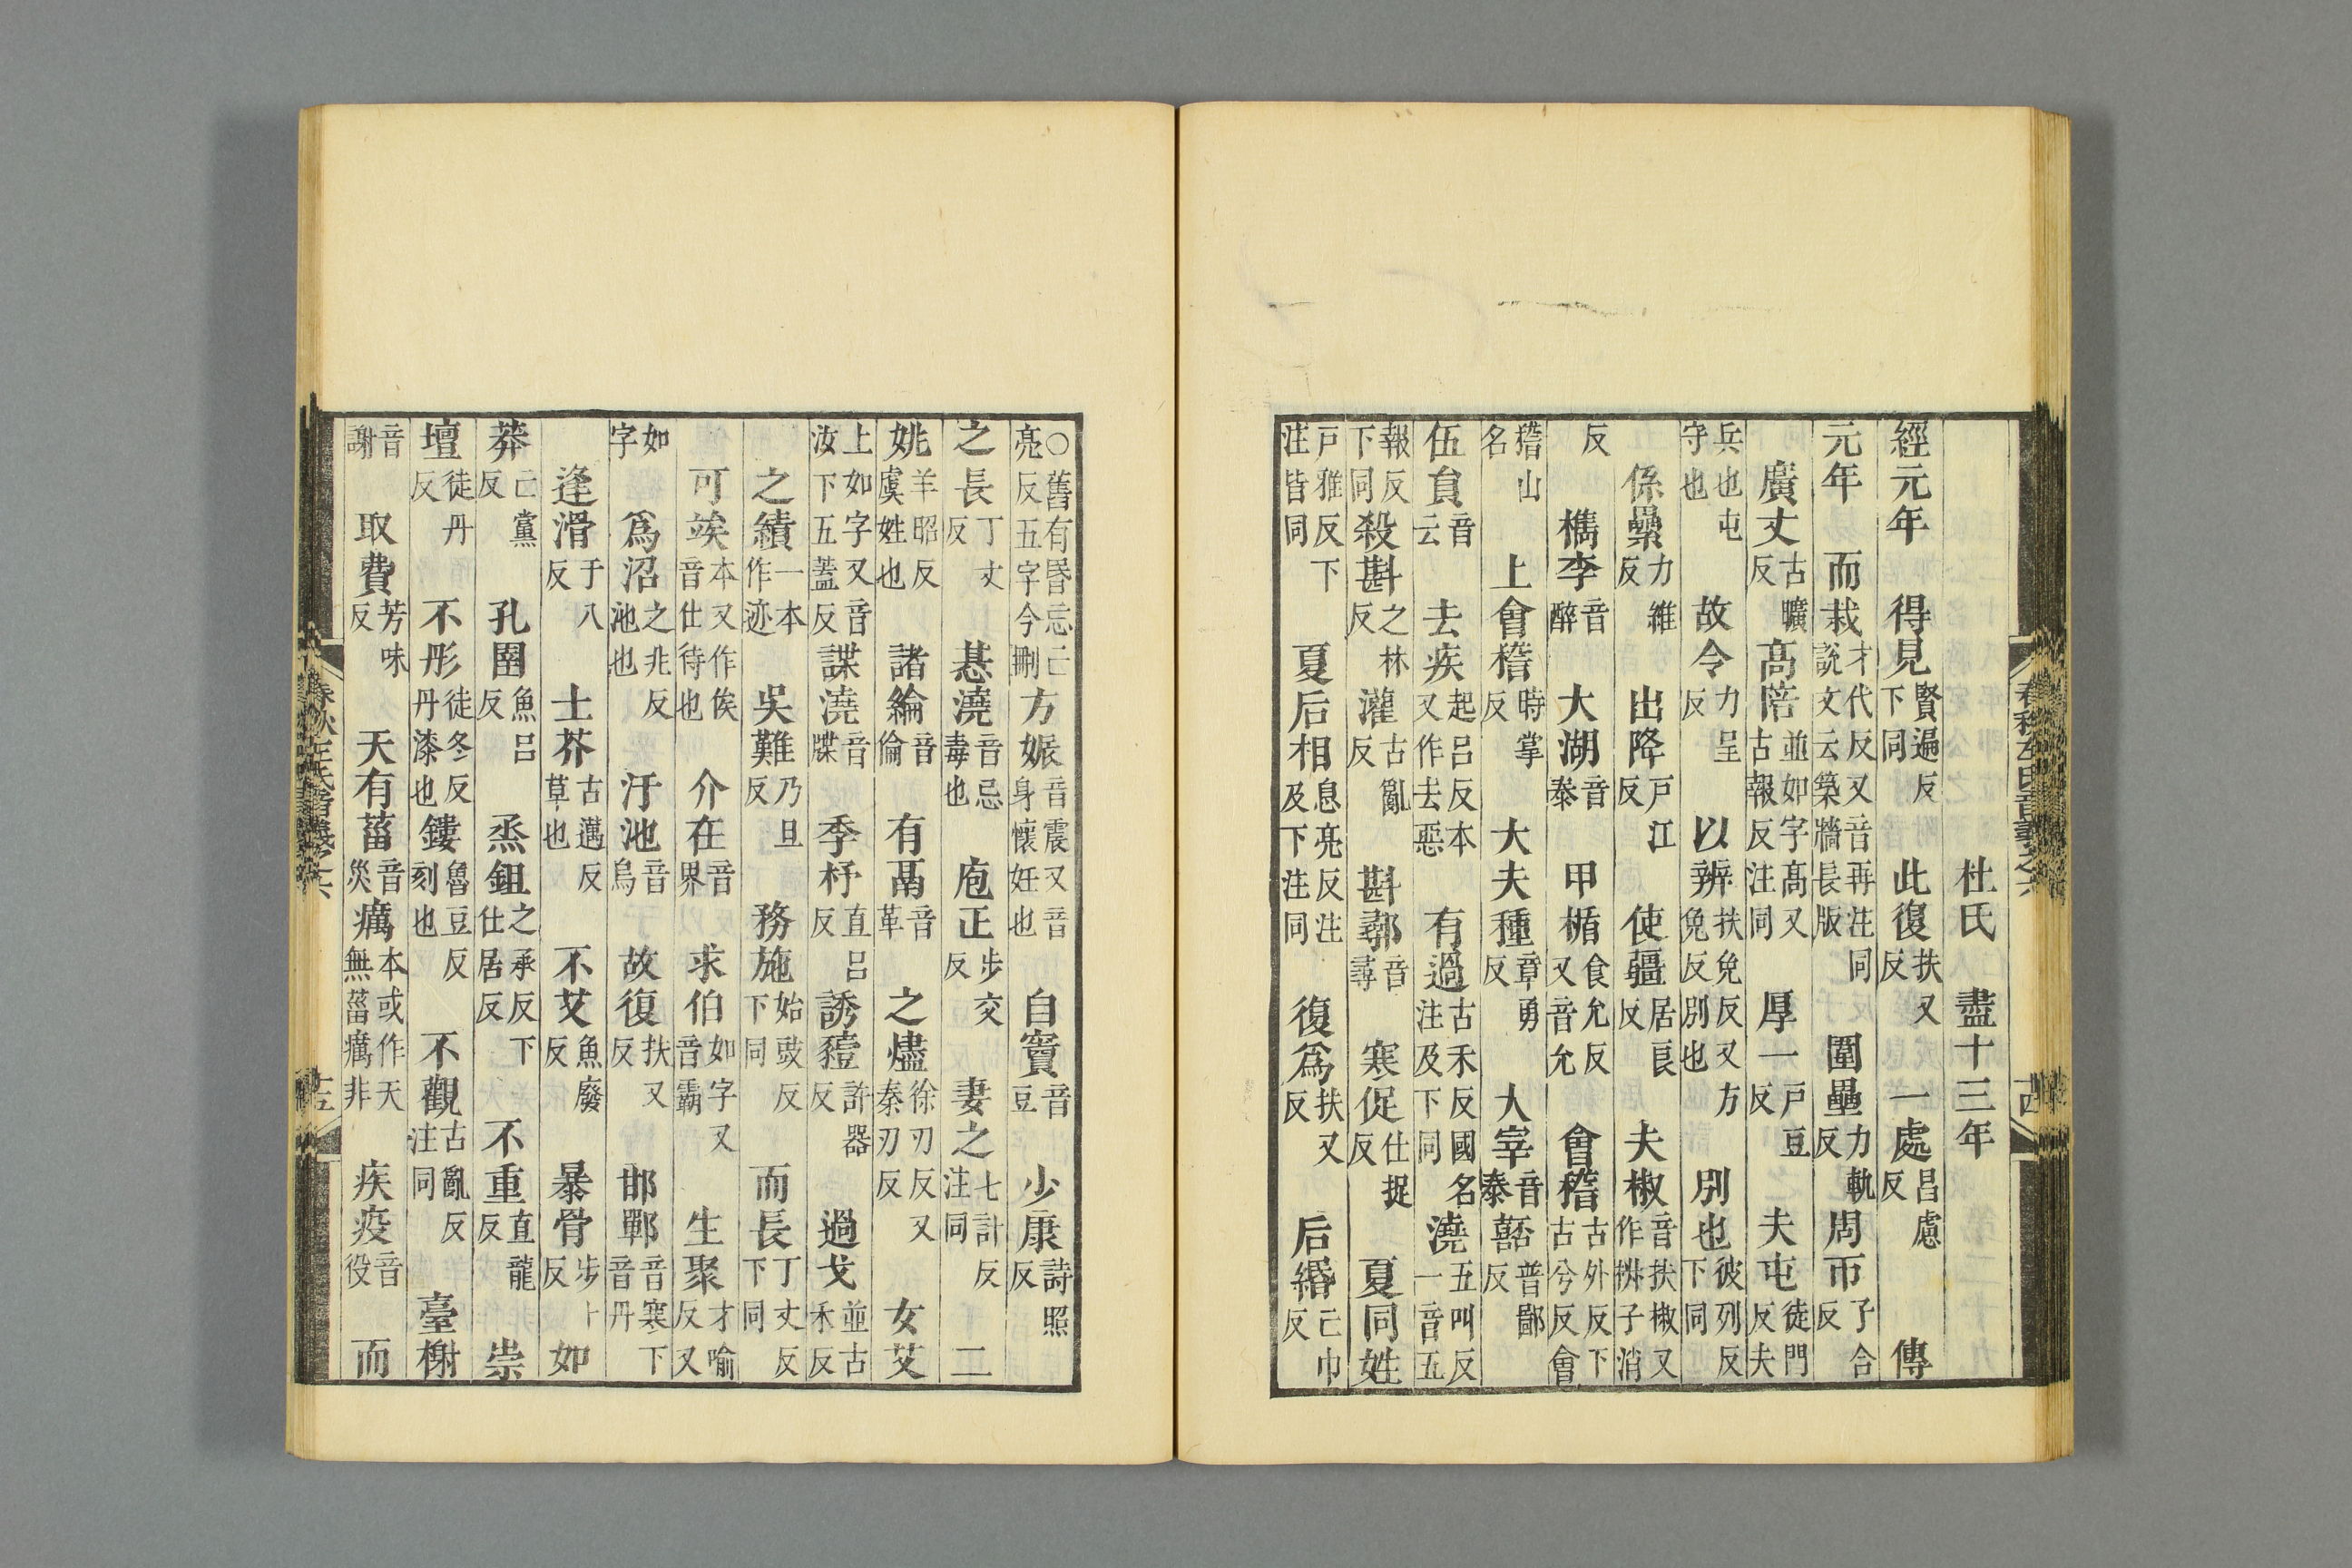 杜氏 盡十三年
經元年 得見賢遍反下同 此復扶又反 一處昌慮反 傳
元年 而栽才代反又音再注同說文云築牆長版 圍壘力軌反 周帀子合反
廣丈古曠反 高陪並如字高又古報反注同 厚一戸豆反 夫屯徒門反夫
兵也屯守也 故令力呈反 以辨扶免反又方免反別也 別也彼列反下同
係纍力維反 出降戸江反 使疆居良反 夫椒音扶椒又作㭰子消
反 檇李音醉 大湖音泰 甲楯食允反又音允 會稽古外反下古兮反會
稽山名 上會稽時掌反 大夫種章勇反 大宰音泰嚭普鄙反
伍員音云 去疾起呂反本又作去惡 有過古禾反國名注及下同 澆五叫反一音五
報反下同 殺斟之林反 灌古亂反 斟鄩音尋 寒促仕捉反 夏同姓
戸雅反下注皆同 夏后相息亮反注及下注同 復爲扶又反 后緡亡巾反
春秋左氏音義之六 十四
○舊有昬忘亡亮反五字今刪 方娠音震又音身懷妊也 自竇音豆 少康詩照反
之長丁丈反 惎澆音忌毒也 庖正步交反 妻之七計反注同 二
姚羊昭反虞姓也 諸綸音倫 有鬲音革 之燼徐刃反又秦刃反 女艾
上如字又音汝下五蓋反 諜澆音牒 季杼直呂反 誘豷許器反 過戈並古禾反
之績一本作迹 吳難乃旦反 務施始豉反下同 而長丁丈反下同
可竢本又作俟音仕待也 介在音界 求伯如字又音霸 生聚才喻反又
如字 爲沼之兆反池也 汙池音烏 故復扶又反 邯鄲音寒下音丹
逢滑于八反 士芥古邁反草也 不艾魚廢反 暴骨步卜反 如
莽亡黨反 孔圉魚呂反 烝鉏之承反下仕居反 不重直龍反 崇
壇徒丹反 不彤徒冬反丹漆也 鏤魯豆反刻也 不觀古亂反注同 臺榭
音謝 取費芳味反 天有菑音災 癘本或作天無菑癘非 疾疫音役 而
春秋左氏音義之六 十五